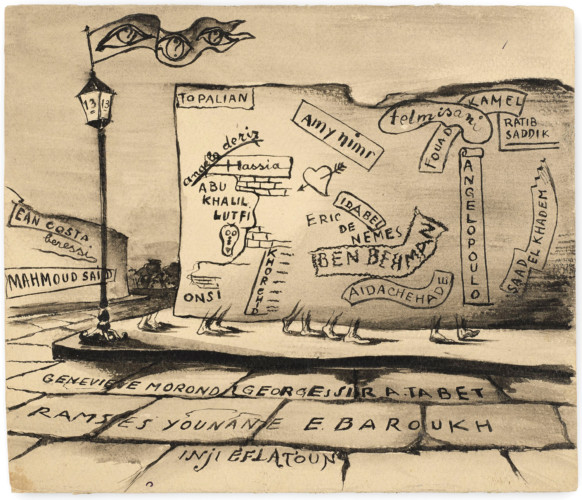 ?
13 13
TOPALIAN
Amy nimr
telmisani
KAMEL
FOUAD
RATIB
SADDIK
angelo deriz
Hassia
ABU
KHALIL
LUTFI
IDABEL
ERIC
DE
NEMES
BEN BEHMAN
ANGELOPOULO
SAAD
EL KHADEM
EAN COSTA
beressi
MAHMOUD SAID
ONSI
KHORCHID
AIDACHEHADE
GENEVIEVE MOROND GEORGES SIRA.TABET
RAMSES YOUNANE E BAROUKH
INJI EFLATOUN